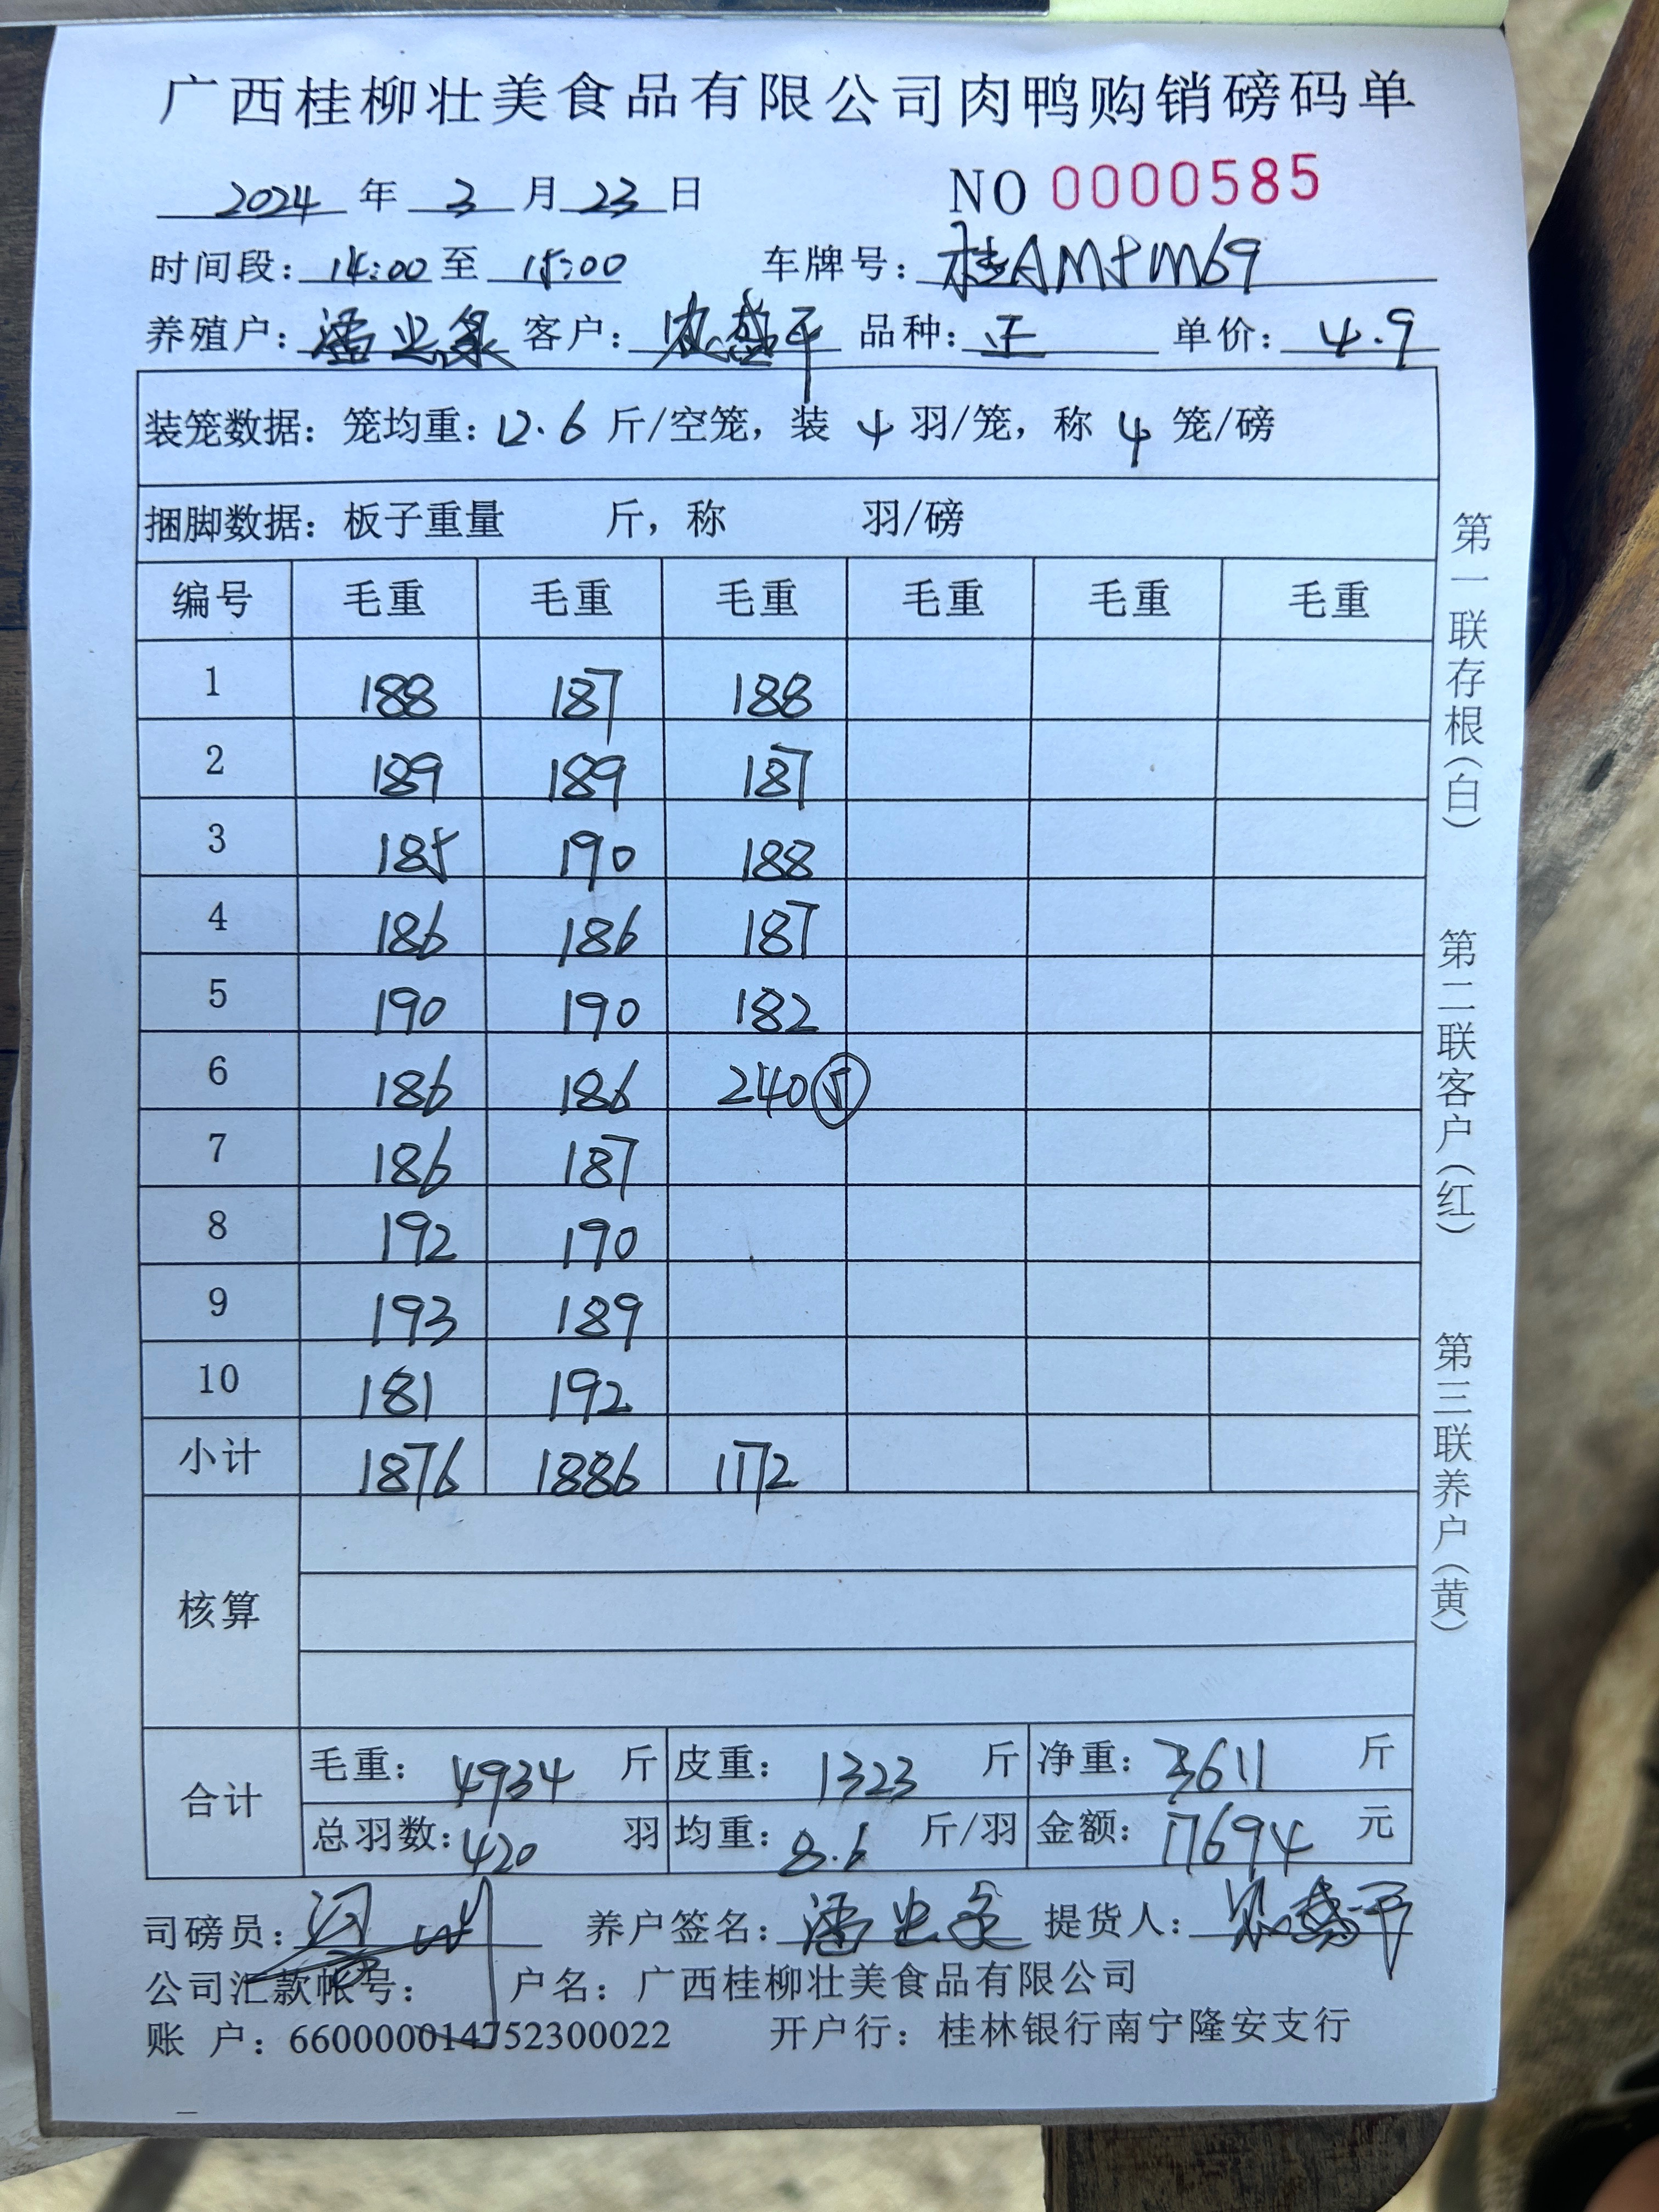 广西桂柳壮美食品有限公司肉鸭购销磅码单
2024 年 3 月 23 日 NO 0000585
时间段: 14:00 至 15:00 车牌号: 桂AM M69
养殖户: 潘 客户: 盛平 品种: 正 单价: 4.9
装笼数据: 笼均重: 12.6 斤/空笼, 装 4 羽/笼, 称 4 笼/磅
捆脚数据: 板子重量 斤, 称 羽/磅
编号 毛重 毛重 毛重 毛重 毛重 毛重
1 188 187 188
2 189 189 187
3 185 190 188
4 186 186 187
5 190 190 182
6 186 186 240⑤
7 186 187
8 192 190
9 193 189
10 181 192
小计 1876 1886 1172
核算
合计 毛重: 4934 斤 皮重: 1323 斤 净重: 3611 斤
总羽数: 420 羽 均重: 8.6 斤/羽 金额: 17694 元
司磅员: 养户签名: 潘 提货人: 平
公司汇款帐号: 户名: 广西桂柳壮美食品有限公司
账 户: 660000014752300022 开户行: 桂林银行南宁隆安支行
第一联存根(白) 第二联客户(红) 第三联养户(黄)